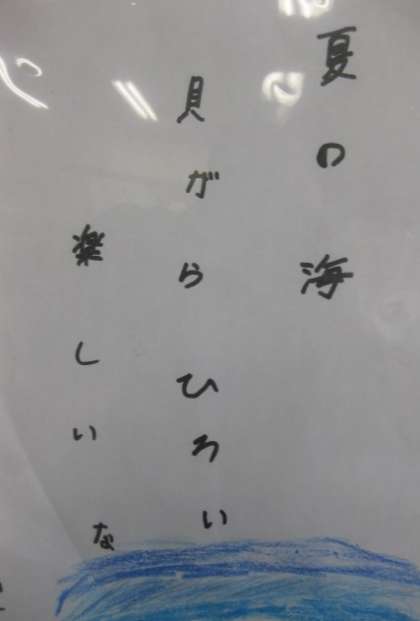 夏の海
貝がらひろい
楽しいな